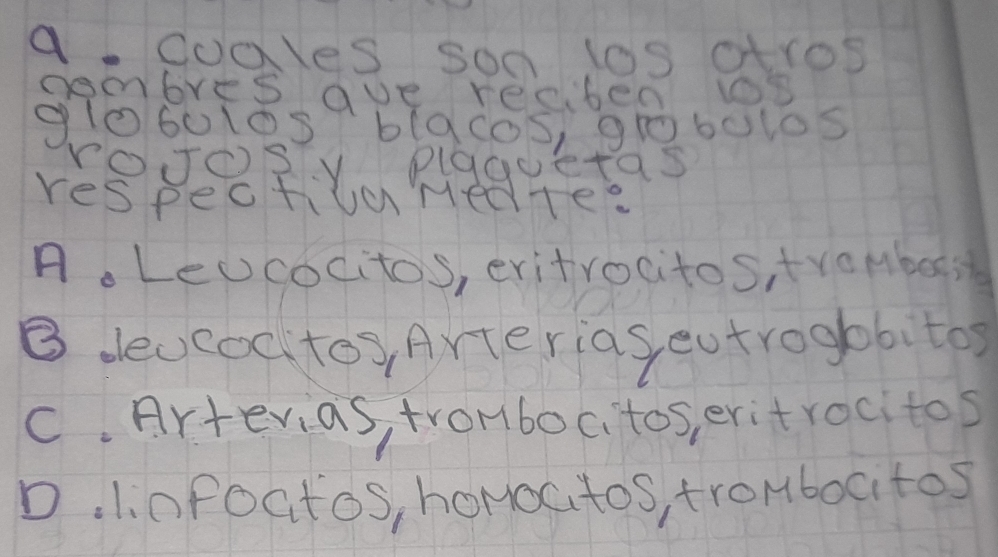 a. cuales son los otros
nombres que reciben los
globulos blacos, globulos
rojos y plaquetas
respectivamedte:
A. Leucocitos, eritrocitos, trombocito
B. leucocitos, Arterias, eutroglobitos
C. Arterias, trombocitos, eritrocitos
D. linfocitos, homocitos, trombocitos